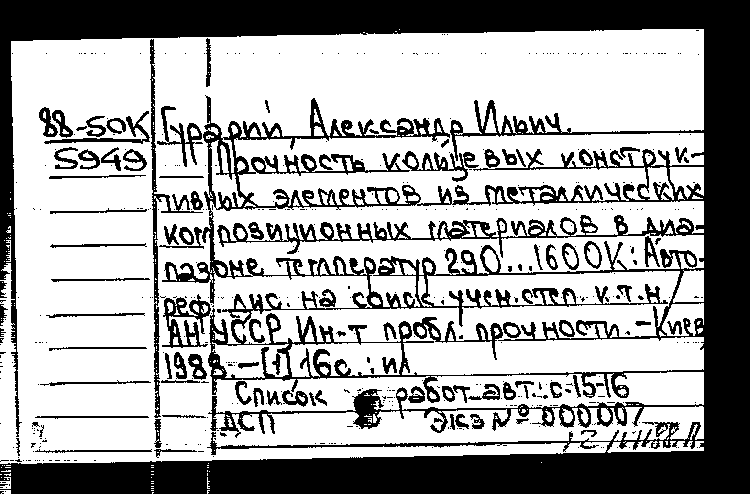 88-50К Гурарий, Александр Ильич.
5949 Прочность кольцевых конструк-
тивных элементов из металлических
композиционных материалов в диа-
пазоне температур 290...1600К: Авто-
реф. дис. на соиск. учен. степ. к.т.н. /
АН УССР, Ин-т пробл. прочности. - Киев
1988. - [1] 16с. : ил.
Список работ авт.: с. 15-16
ДСП Экз № 000007